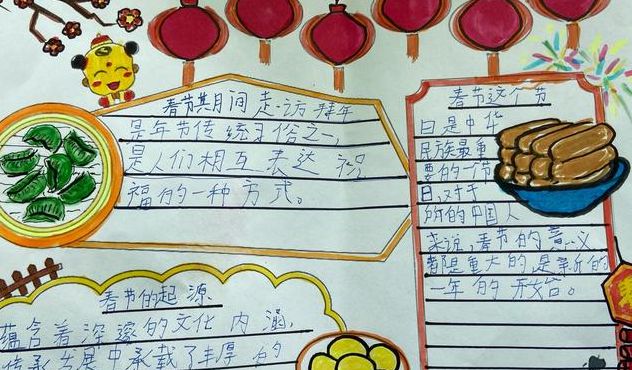 春节其月间走访拜年
是年节传统习俗之一,
是人们相互表达祝
福的一种方式。
春节这个节
日是中华
民族最重
要的一节
日,对于
所的中国人
来说,春节的意义
都是重大的,是新的
一年的开始。
春节的起源
蕴含着深邃的文化内涵,
传承发展中承载了丰厚的